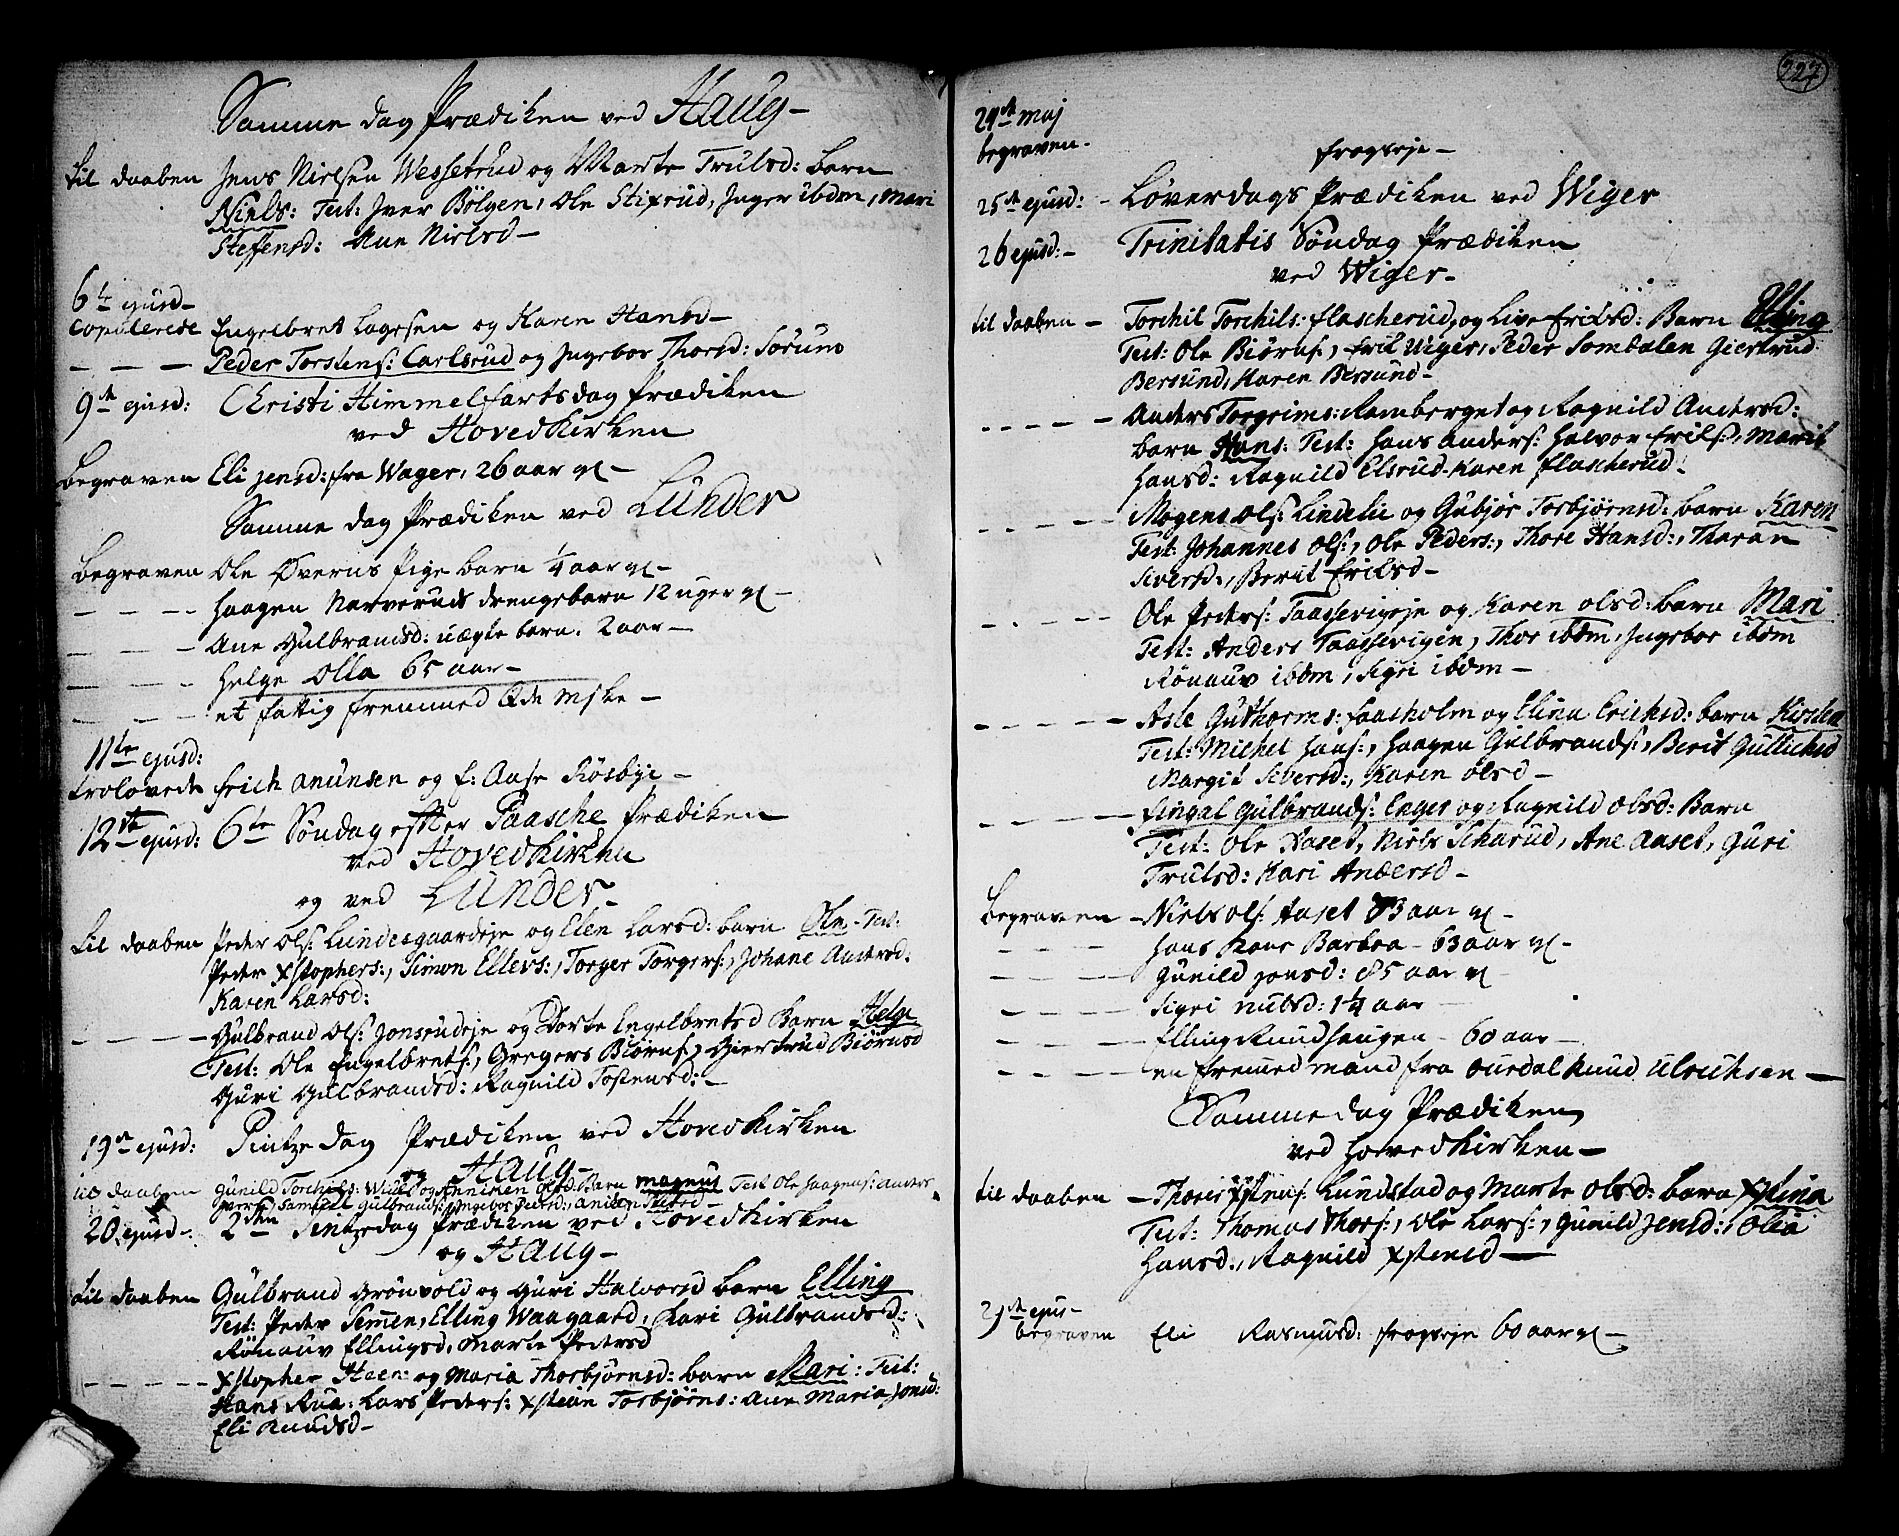 Samme dag Prædiken ved Haug -
til daaben Jens Nielsen Wessetrud og Marte Trulsd: barn
Niels: Test: Jver Bölgen, Ole Stixrud, Jnger ibdm, Mari
Steffensd: Ane Nielsd -
6te ejusd -
Copulerede Engelbret Lagesen og Karen Hansd -
- - - Peder Torstens: Carlsrud og Jngebor Thorsd: Sørum
9de ejusd: Christi Himmelfartsdag Prædiken
ved Hovedkirken
Begraven Eli Jensd: fra Wager, 26 aar gl -
Samme dag Prædiken ved Lunder
Begraven Ole Øverus Pige barn 1/4 aar gl -
- - - Haagen Narveruds drengebarn 12 uger gl -
- - - Ane Gulbrandsd: uægte barn. 2 aar -
- - - Helge Olla 65 aar -
- - - et fattig fremmed Qde Mske -
11te ejusd:
trolovede Erich Anunsen og f: Aase Rösbye -
12te ejusd: 6te Söndag effter Paasche Prædiken
ved Hovedkirken
og ved Lunder -
til daaben Peder Ols: Lundesgaardeje og Elen Larsd: barn Ole - Test:
Peder Xstophers:, Simon Ellevs:, Torger Torgers:, Johane Andersd:
Karen Larsd:
- - - - Gulbrand Ols: Jonsrudeje og Dorte Engelbretsd Barn Helge
Test: Ole Engelbrets:, Gregers Biörns:, Giertrud Biörnsd
Guri Gulbrandsd: Ragnild Tostensd: -
19de ejusd: Pintze dag Prædiken ved Hovedkirken
og Haug -
til daaben Gunild Torchils: og Anniken Olsd: Barn magnus Test Ole Haagens: Anders
Samuel Gulbrands: Jngebor Pedersd:,
20 ejusd - 2den Pintzedag Prædiken ved Hovedkirken
og Haug -
til daaben Gulbrand Grönvold og Guri Halvorsd barn Elling
Test: Peder Semmen, Elling Waagaard, Kari Gulbrandsd:
Rönauv Ellingsd, Marte Pedersd
- - - - Xstopher Heen: og Maria Thorbjörnsd: barn Mari: Test:
Hans Rua: Lars Peders: Xstian Torbjörns: Ane Maria Jonsd:
Eli Knudsd -
227
24de Maj
begraven - Frogseje -
25de ejusd: - Løverdags Prædiken ved Wiger
26 ejusd: - Trinitatis Söndag Prædiken
ved Wiger -
til daaben - Torchil Torchils: flascherud, og Live Eriksd: Barn Elling
Test: Ole Biörns:, Eril Wiger, Peder Sombalen Giertrud
Bersund, Karen Bersund -
- - - - Anders Torgrims: Ramberget og Ragnild Andersd:
barn Hans: Test: Hans Anders: Halvor Eriks:, Marit
Hansd: Ragnild Elsrud. Karen flascherud -
- - - - Mogens Ols: Lindelie og Gubjør Torbjørnsd: barn Karen
Test: Johannes Ols:, Ole Peders:, Thore Hansd:, Tharan
Siversd:, Berit Eriksd -
- - - - Ole Peders: Taasevigeje og Karen Olsd: barn Mari
Test: Anders Taassevigen, Thor ibdm, Jngebor ibdm
Rönauv ibdm, Sigri ibdm -
- - - - Asle Guthorms: Faasholm og Elina Erichsd: barn Kirsten
Test: Michel Hans:, Haagen Gulbrands:, Berit Gullichsd
Margit Siversd:, Karen Olsd -
- - - - Fingal Gulbrands: Enger og Ragnild Olsd: Barn
Test: Ole Aaset, Niels Scharud, Ane Aaset, Guri
Trulsd: Kari Andersd -
Begraven - Niels Ols: Aaset 83 aar gl -
- - - Hans Roas Barbra - 63 aar gl -
- - - Gunild Jonsd: 85 aar gl -
- - - Sigri Nilsd: 1 1/4 aar
- - - Elling Knudhaugen - 60 aar -
- - - en fremed mand fra Ourdal Knud Ulrichsen -
Samme dag Prædiken
ved Hovedkirken -
til daaben - Thoris Xstens: Lundstad og Marte Olsd: barn Xstina
Test: Thomas Thors:, Ole Lars:, Gunild Jensd:, Olia
Hansd:, Ragnild Xstensd -
29de ejus -
begraven Eli Rasmusd: Frogseje 60 aar gl -